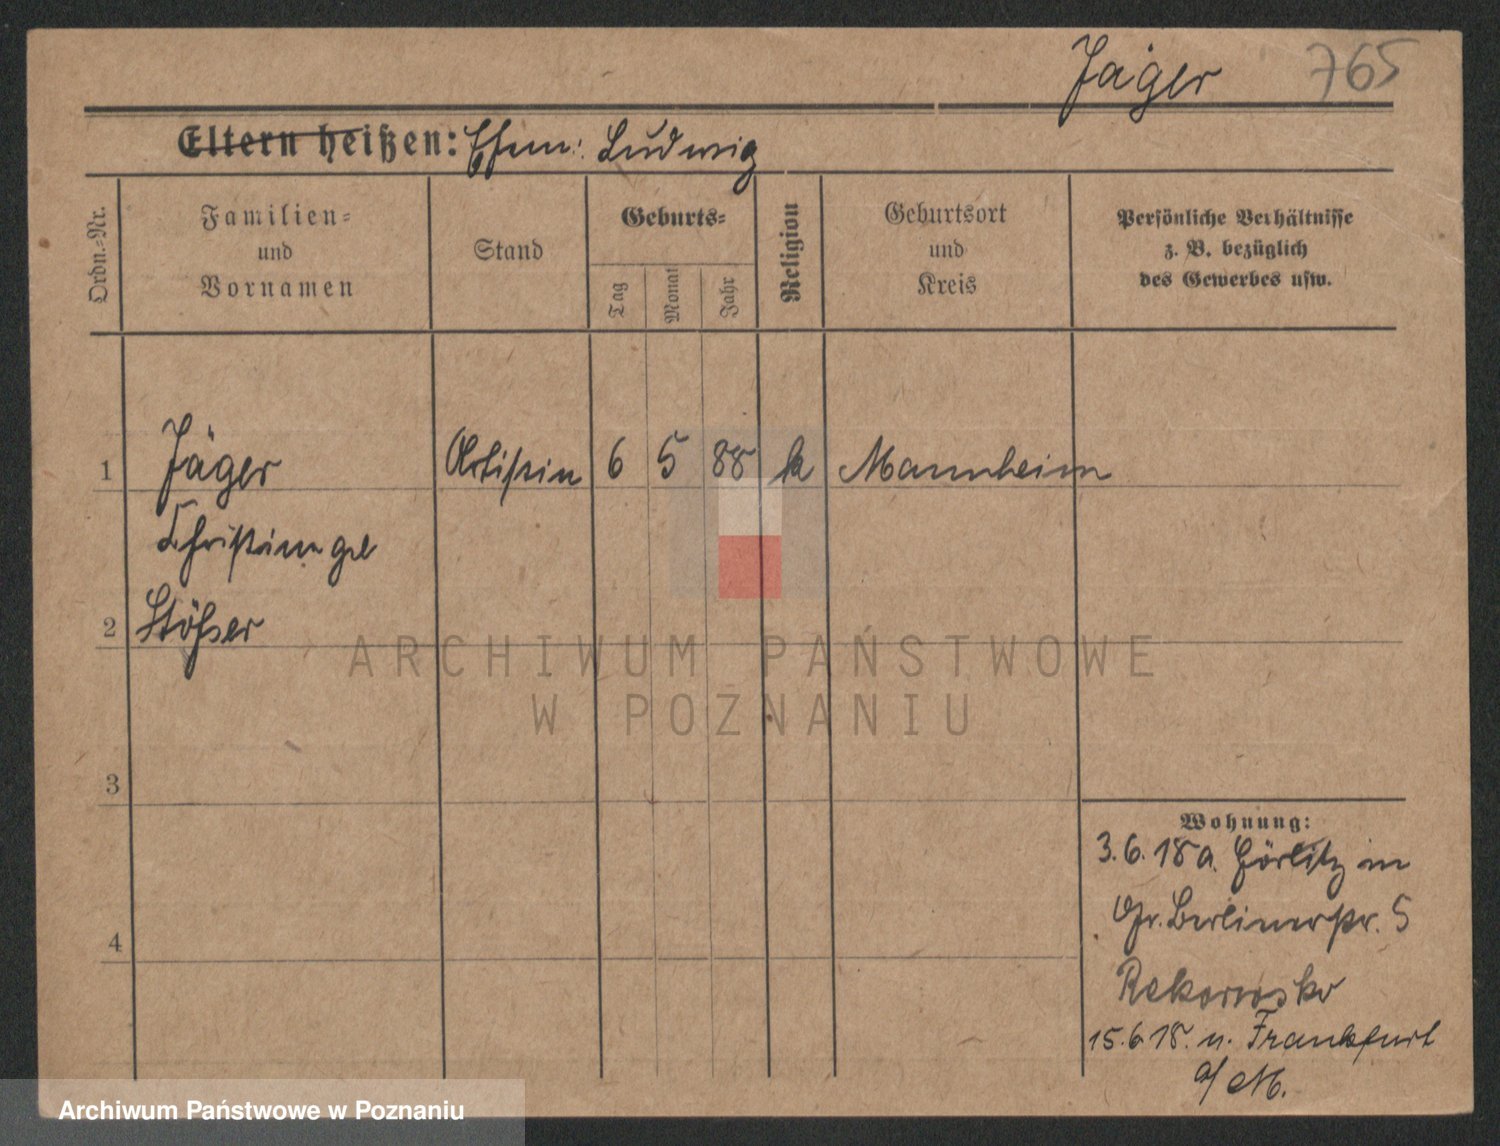 Jäger 765
Eltern heißen: Ehem: Ludwig
Ordn.-Nr.
Familien-
und
Vornamen
Stand
Geburts-
Tag
Monat
Jahr
Religion
Geburtsort
und
Kreis
Persönliche Verhältnisse
z. B. bezüglich
des Gewerbes usw.
1 Jäger Artistin 6 5 88 k Mannheim
Christine geb
2 Stößer
3
4
Wohnung:
3.6.18 a. Görlitz in
Gr. Berlinerstr. 5
15.6.18. n. Frankfurt
a/M.
ARCHIWUM PAŃSTWOWE
W POZNANIU
Archiwum Państwowe w Poznaniu